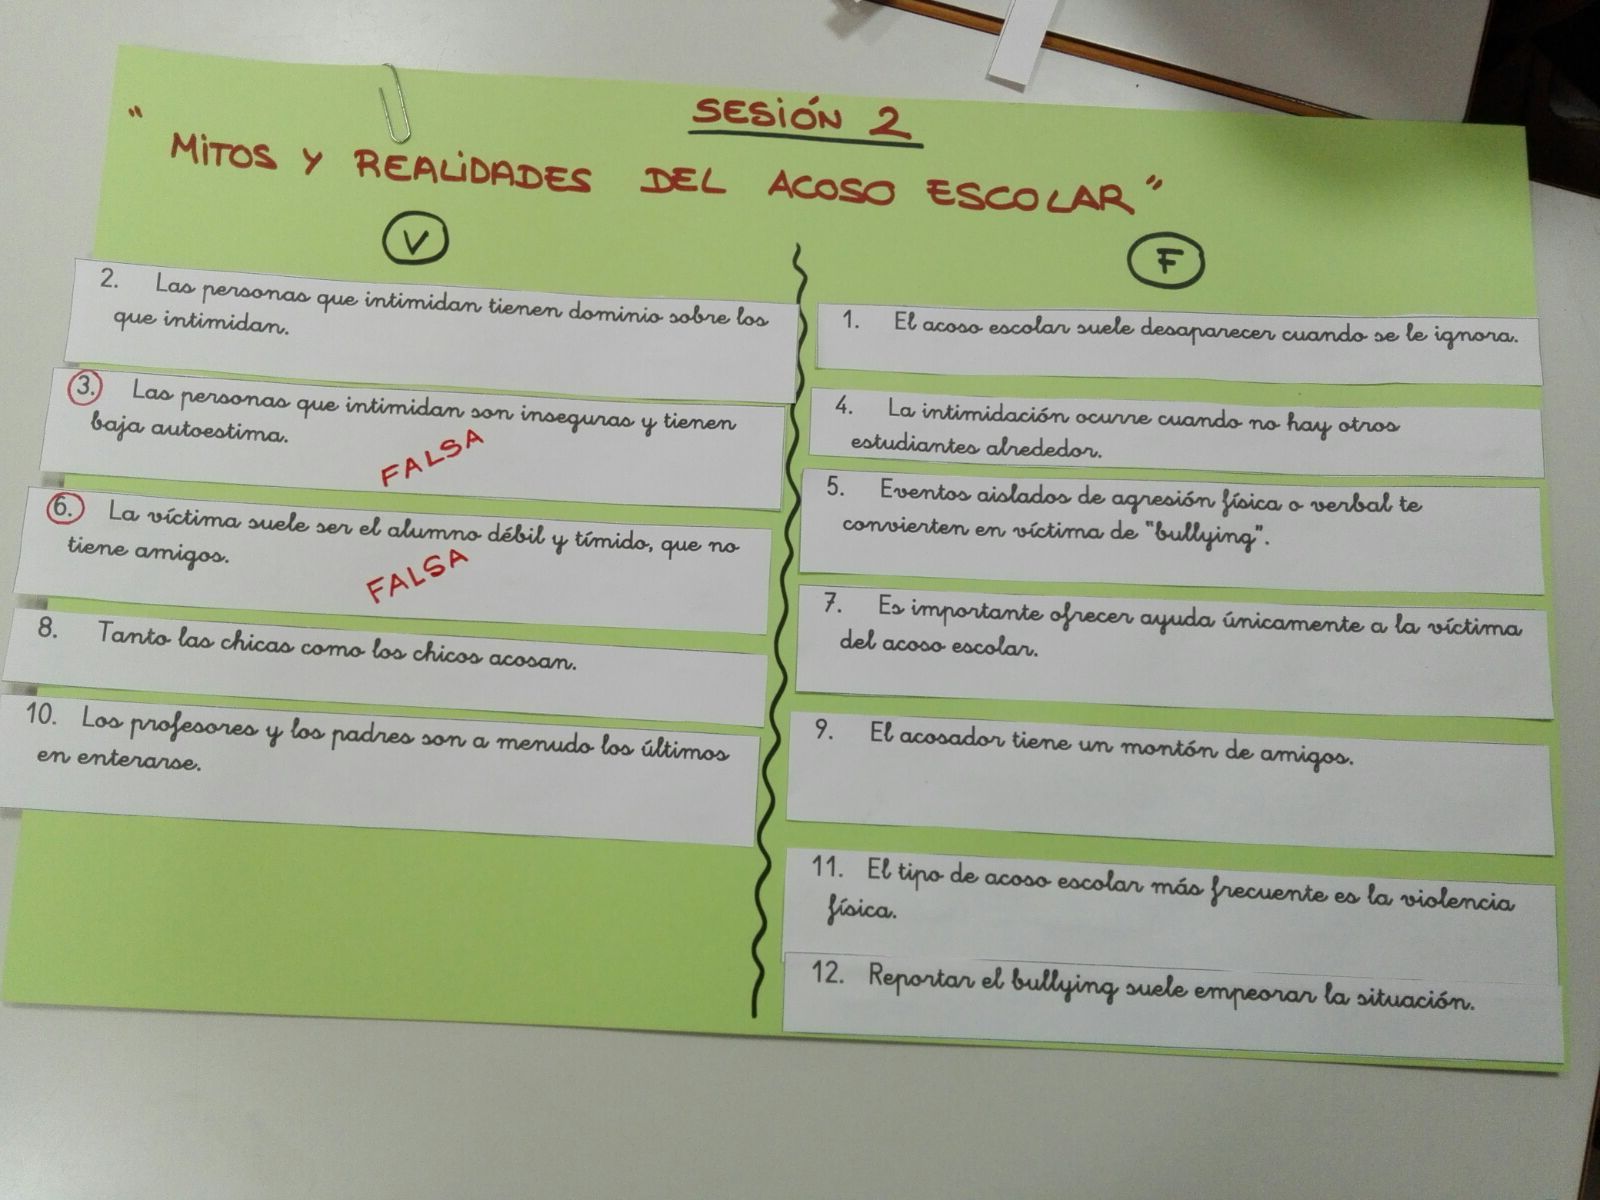 SESIÓN 2
" MITOS Y REALIDADES DEL ACOSO ESCOLAR"
V
2. Las personas que intimidan tienen dominio sobre los
que intimidan.
3. Las personas que intimidan son inseguras y tienen
baja autoestima.
FALSA
6. La víctima suele ser el alumno débil y tímido, que no
tiene amigos.
FALSA
8. Tanto las chicas como los chicos acosan.
10. Los profesores y los padres son a menudo los últimos
en enterarse.
F
1. El acoso escolar suele desaparecer cuando se le ignora.
4. La intimidación ocurre cuando no hay otros
estudiantes alrededor.
5. Eventos aislados de agresión física o verbal te
convierten en víctima de "bullying".
7. Es importante ofrecer ayuda únicamente a la víctima
del acoso escolar.
9. El acosador tiene un montón de amigos.
11. El tipo de acoso escolar más frecuente es la violencia
física.
12. Reportar el bullying suele empeorar la situación.